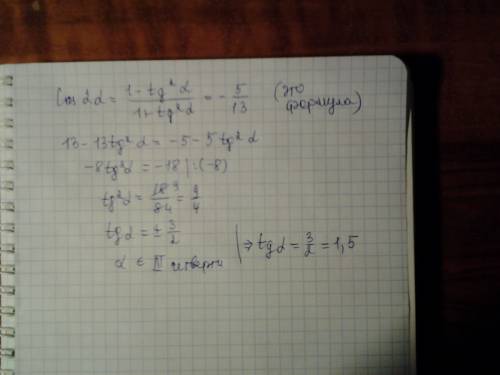 cos 2α = (1 - tg²α)/(1 + tg²α) = - 5/13 (это формула)
13 - 13tg²α = -5 - 5tg²α
-8tg²α = -18 | :(-8)
tg²α = 18 9/8 4 = 9/4
tgα = ± 3/2
α ∈ III четверти | ⇒ tgα = 3/2 = 1,5